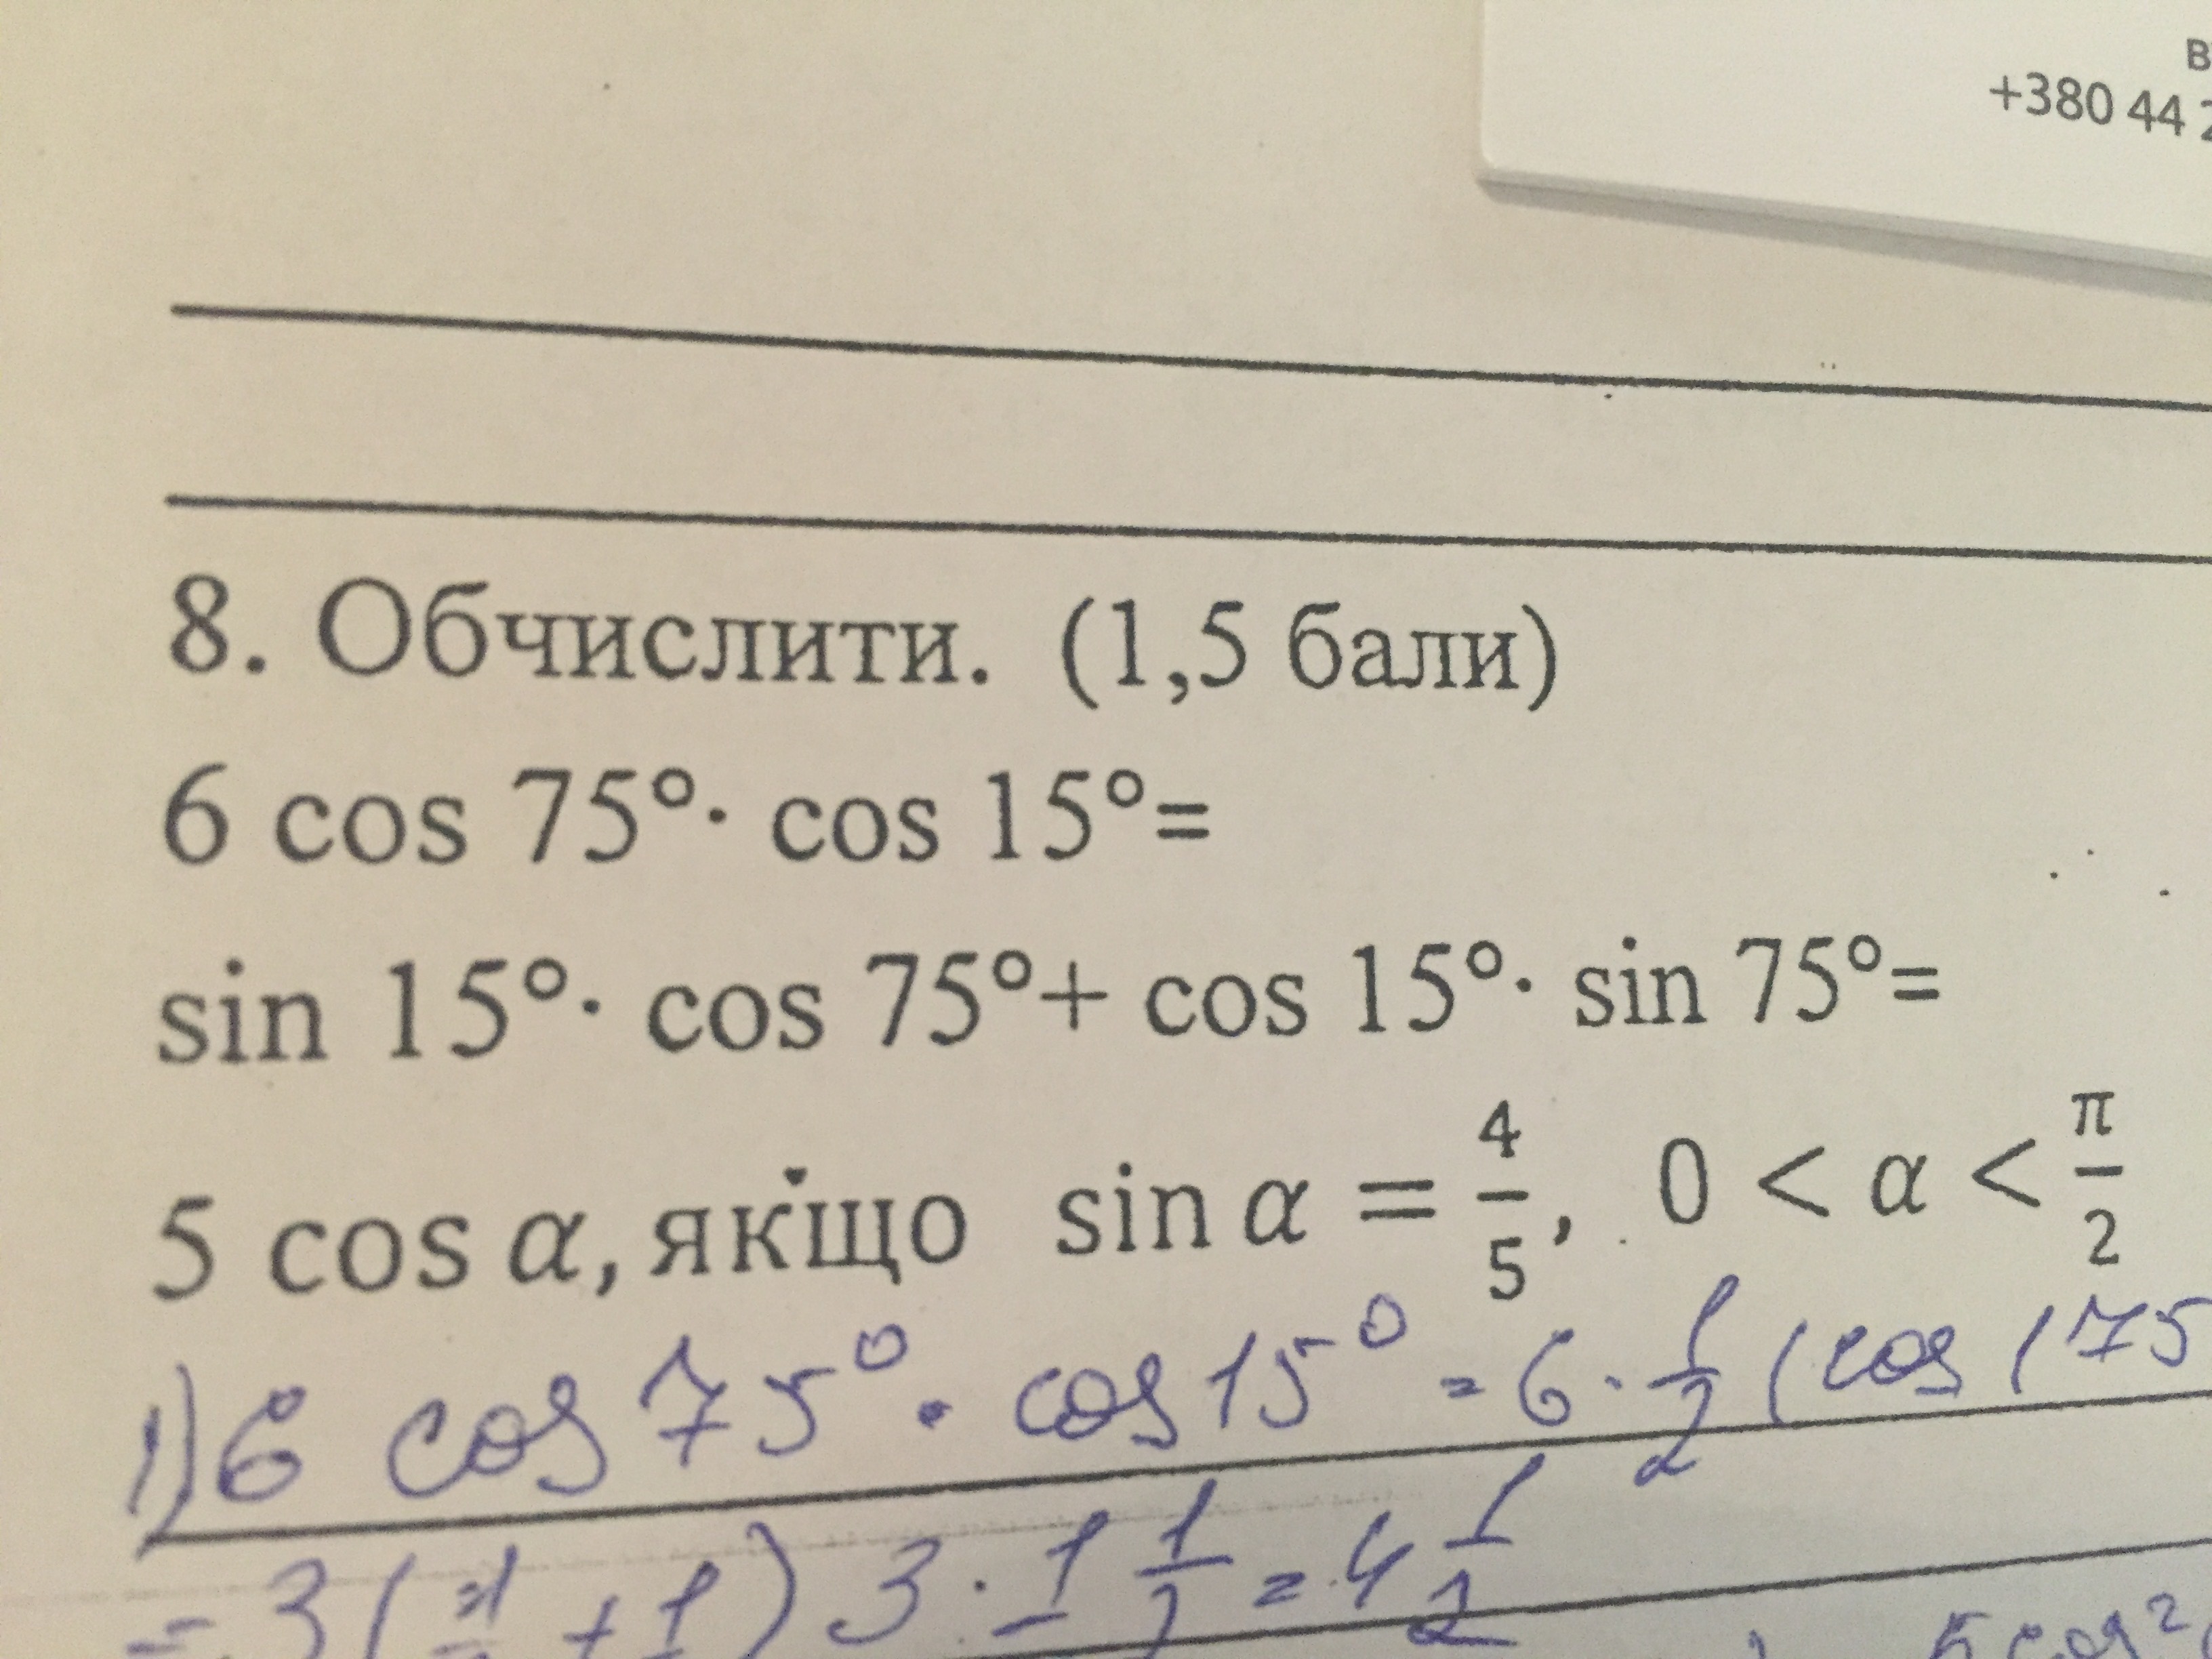 +380 44
8. Обчислити. (1,5 бали)
6 cos 75°· cos 15°=
sin 15°· cos 75°+ cos 15°· sin 75°=
5 cos α, якщо sin α = 4/5, 0 < α < π/2
1) 6 cos 75° · cos 15° = 6 · 1/2 (cos (75
3 · 1 1/2 = 4 1/2
5 cos²